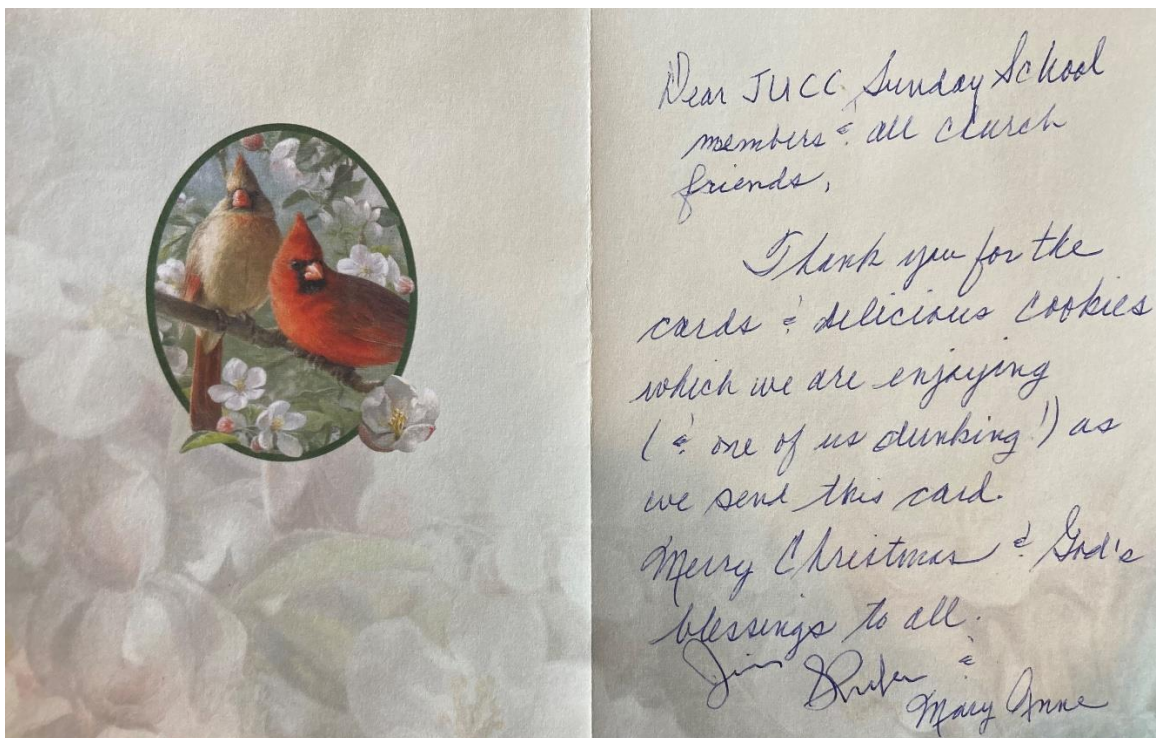 Dear JUCC Sunday School
members & all church
friends,
Thank you for the
cards & delicious cookies
which we are enjoying
(& one of us dunking!) as
we send this card.
Merry Christmas & God's
blessings to all.
Jim &
Mary Anne